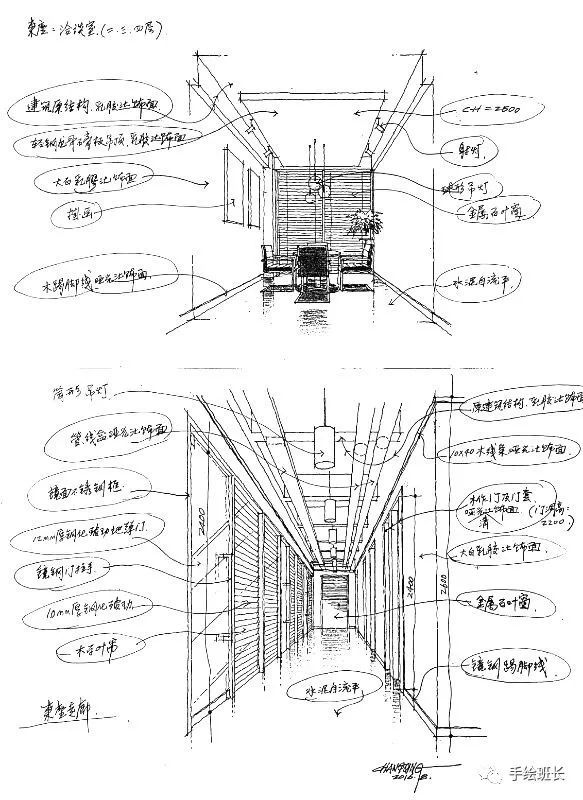 東座：洽谈室.(二.三.四层)
建筑原结构.乳胶漆饰面
轻钢龙骨石膏板吊顶.乳胶漆饰面
大白乳胶漆饰面
挂画
木踢脚线哑光漆饰面
CH=2500
射灯.
球形吊灯
金属百叶窗
水泥自流平
筒形吊灯
管线盒哑光漆饰面
镜面不锈钢框
12mm厚钢化玻璃地弹门
镜钢门拉手
10mm厚钢化玻璃
木百叶帘
東座走廊
原建筑结构.乳胶漆饰面
10x40木线条哑光漆饰面
木作门及门套
哑光清漆饰面
(门洞高:2200)
大白乳胶漆饰面.
金属百叶窗
镜钢踢脚线
水泥自流平
2400
2400
2600
2016.8.
手绘班长